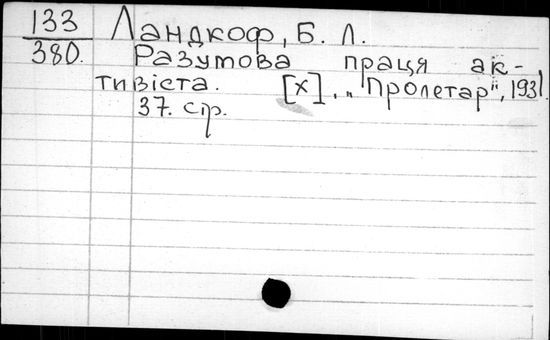 133 Ландкоф, Б. Л.
380. Разумова праця ак-
тивіста. [х]. „Пролетар", 1931.
37. сір.